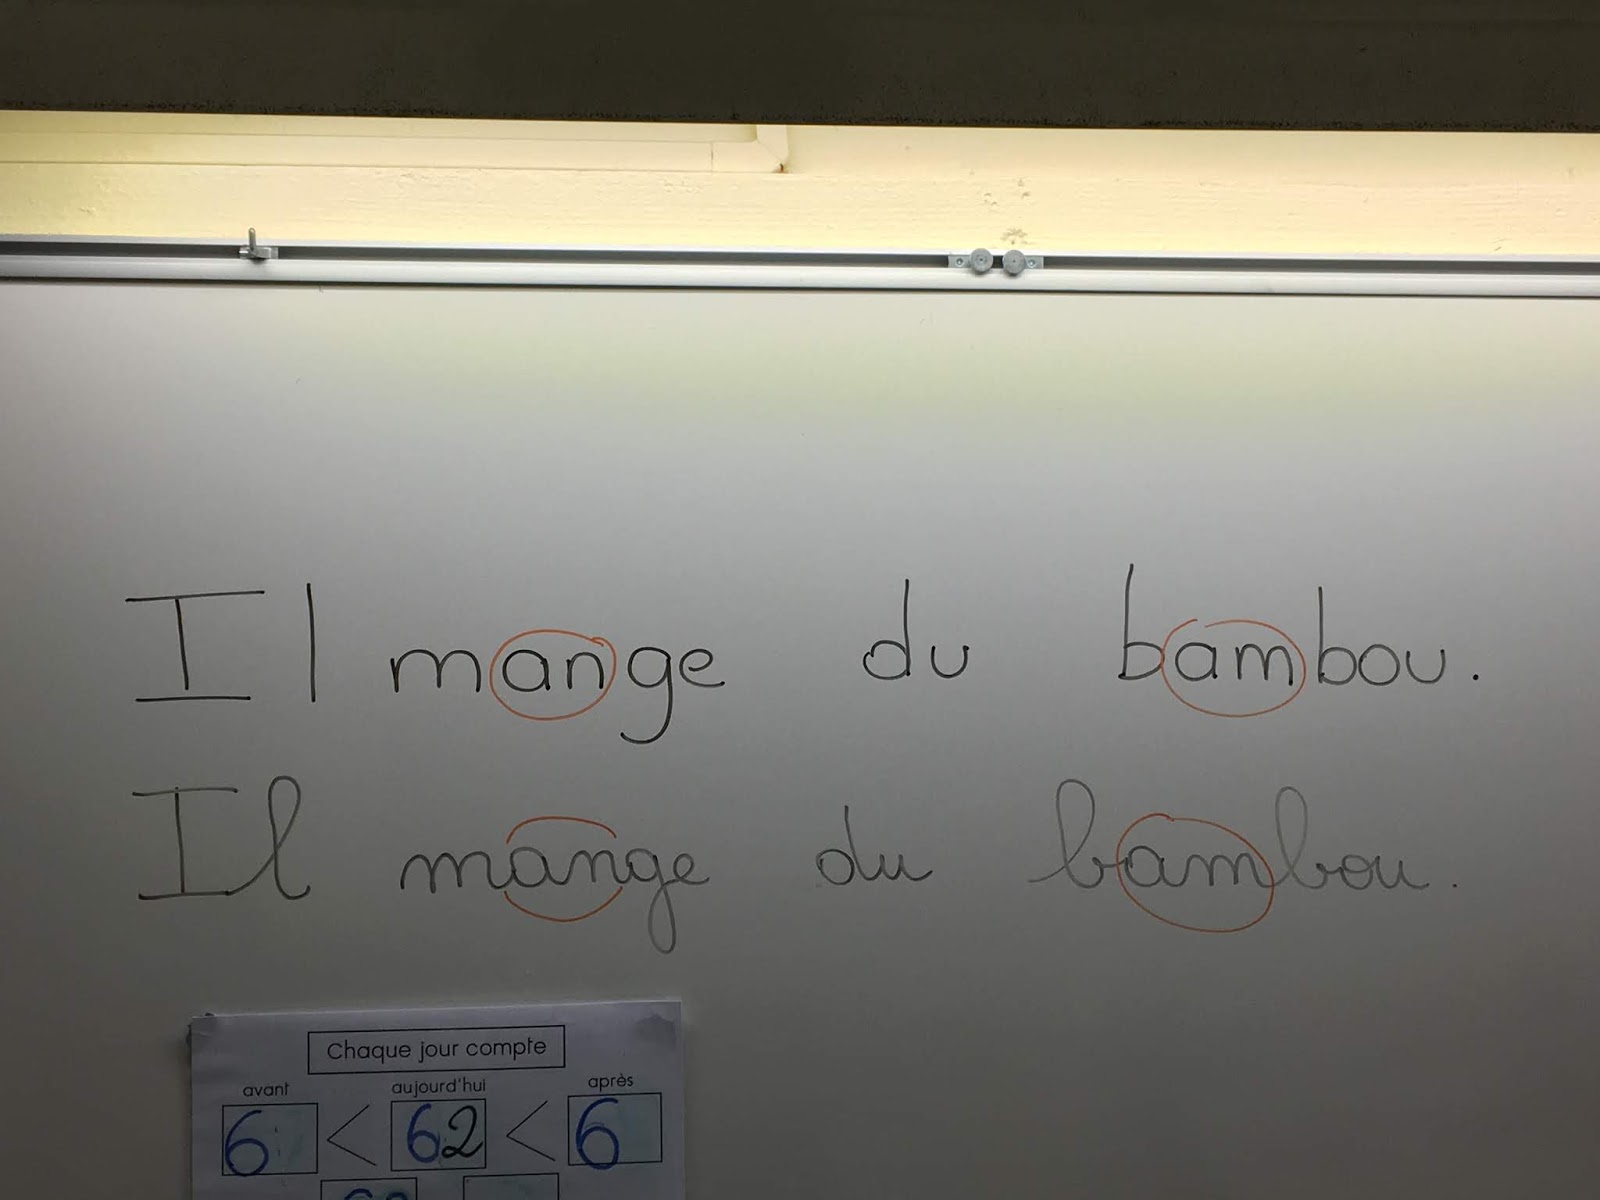 Il mange du bambou.
Il mange du bambou.
Chaque jour compte
avant aujourd'hui après
6 < 62 < 6